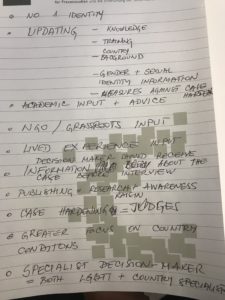 • NO 1 IDENTITY
• UPDATING – KNOWLEDGE
– TRAINING
– COUNTRY
BACKGROUND
– GENDER + SEXUAL
IDENTITY INFORMATION
– MEASURES AGAINST CASE
• ACADEMIC INPUT + ADVICE
• NGO / GRASSROOTS INPUT
• LIVED EXPERIENCE INPUT
DECISION MAKER RECEIVE
• INFORMATION ABOUT THE
CASE BEFORE INTERVIEW
• PUBLISHING RESEARCH AWARENESS
• CASE HARDENING = JUDGES
• GREATER FOCUS ON COUNTRY
CONDITIONS
• SPECIALIST DECISION-MAKER
= BOTH + COUNTRY SPECIALIST